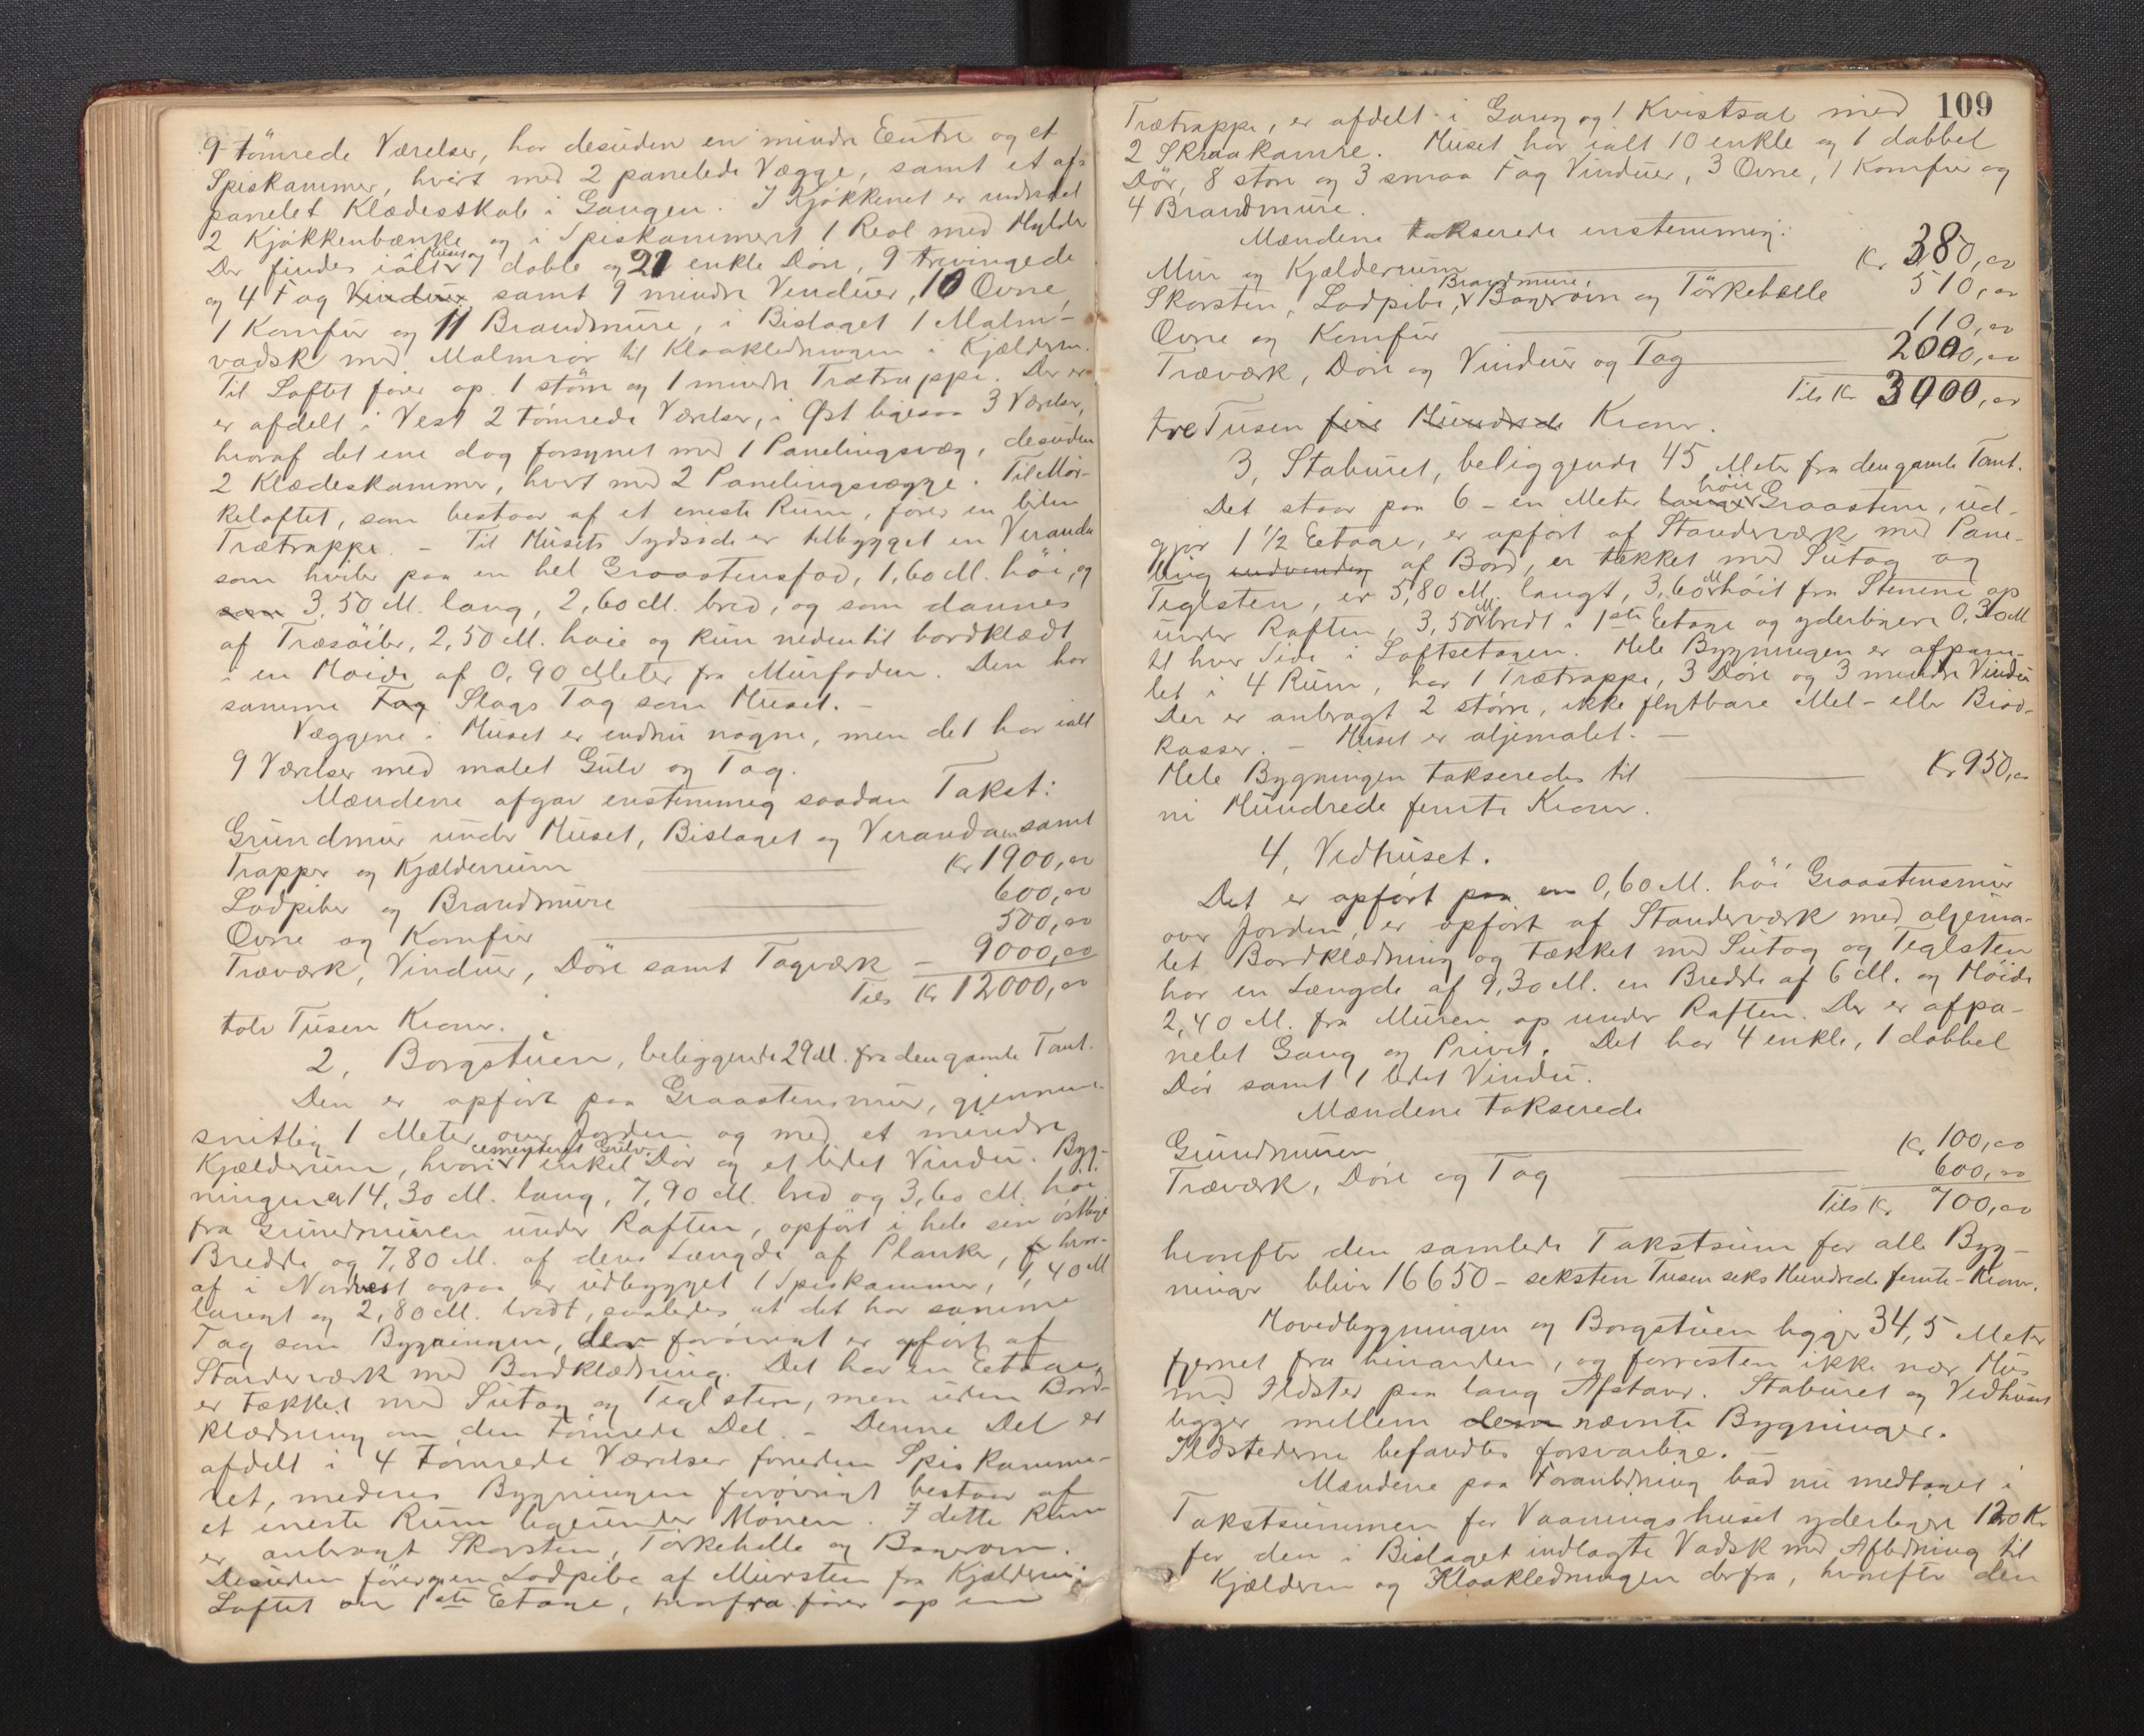 9 tömrede Værelser, har desuden en mindre Entre og et
Spiskammer, hvert med 2 panelede Vægge, samt et af-
panelet Klædesskab i Gangen. I Kjøkkenet er indredet
2 Kjøkkenbænke og i Spiskammeret 1 Reol med Hylder
Der findes ialt i Huset og 7 doble og 21 enkle Döre, 9 trevingede
og 4 Fag Vinduer samt 9 mindre Vinduer, 10 Ovne,
1 Komfur og 11 Brandmure, i Bislaget 1 Malm-
vadsk med Malmrör til Kloakledningen i Kjælderen.
Til Loftet förer op 1 större og 1 mindre Trætrappe. Der er
er afdelt i Vest 2 tömrede Værelser, i Øst ligesaa 3 Værelser,
hvoraf det ene dog forsynet med 1 Panelingsvæg, desuden
2 Klædeskammer, hvert med 2 Panelingsvægge. Til Mör-
keloftet, som bestaar af et eneste Rum, förer en liden
Trætrappe. - Til Husets Sydside er tilbygget en Veranda
som hviler paa en hel Graastensfod, 1,60 M. höi, og
som 3,50 M. lang, 2,60 M. bred, og som dannes
af Træsöiler, 2,50 M. höie og kun nedentil bordklædt
i en Höide af 0,90 Meter fra Murfoden. Den har
samme Fag Slags Tag som Huset. -
Væggene i Huset er endnu nögne, men det har ialt
9 Værelser med malet Gulv og Tag.
Mændene afgav enstemmig saadan Takst:
Grundmur under Huset, Bislaget og Verandaen samt
Trapper og Kjælderrum Kr 1900,00
Lodpiber og Brandmure 600,00
Ovne og Komfur 500,00
Træværk, Vinduer, Döre samt Tagværk - 9000,00
Tils Kr 12000,00
tolv Tusen Kroner.
2, Borgstuen, beliggende 29 M. fra den gamle Tomt.
Den er opfört paa Graastensmur, gjennem-
snitlig 1 Meter over Jorden og med et mindre
Kjælderrum, hvori cementeret Gulv, 1 enkel Dör og et lidet Vindu. Byg-
ningen er 14,30 M. lang, 7,90 M. bred og 3,60 M. höi
fra Grundmuren under Raften, opfört i hele sin östlige
Bredde og 7,80 M. af dens Længde af Planker, hvor-
af i Nordvest ogsaa er udbygget 1 Spiskammer, 1,40 M
langt og 2,80 M. bredt, saaledes at det har samme
Tag som Bygningen, der forövrigt er opfört af
Standerværk med Bordklædning. Det har en Etage,
er tækket med Sutag og Teglsten, men uden Bord-
klædning om den tömrede Del. - Denne Del er
afdelt i 4 tömrede Værelser foruden Spiskamme-
ret, medens Bygningen forövrigt bestaar af
et eneste Rum ligeunder Mönen. I dette Rum
er anbragt Skorsten, Törkehelle og Bagerovn.
Desuden förer en Lodpibe af Mursten fra Kjælderen
Loftet over 1ste Etage, hvorfra förer op en
109
Trætrappe, er afdelt i Gang og 1 Kvistsal med
2 Skraakamre. Huset har ialt 10 enkle og 1 dobbel
Dör, 8 store og 3 smaa Fag Vinduer, 3 Ovne, 1 Komfur og
4 Brandmure.
Mændene takserede enstemmig:
Mur og Kjælderrum Kr 380,00
Skorsten, Lodpibe, Brandmure, Bagerovn og Törkehelle 510,00
Ovne og Komfur 110,00
Træværk, Döre og Vinduer og Tag 2000,00
Tils Kr 3000,00
tre Tusen fire Hundrede Kroner.
3, Staburet, beliggende 45 Meter fra den gamle Tomt.
Det staar paa 6 - en Meter lange höie Graastene, ud-
gjör 1 1/2 Etage, er opfört af Standerværk med Pane-
ling indvendig af Bord, er tækket med Sutag og
Teglsten, er 5,80 M. langt, 3,60 M höit fra Stenene op
under Raften, 3,50 M bredt i 1ste Etage og yderligere 0,30 M
til hver Side i Loftsetagen. Hele Bygningen er afpane-
let i 4 Rum, har 1 Trætrappe, 3 Döre og 3 mindre Vindu
Der er anbragt 2 större, ikke flytbare Mel- eller Bröd-
kasser. - Huset er oljemalet. -
Hele Bygningen takseredes til Kr 950,00
ni Hundrede femti Kroner.
4, Vedhuset.
Det er opfört paa en 0,60 M. höi Graastensmur
over Jorden, er opfört af Standerværk med oljema-
let Bordklædning og tækket med Sutag og Teglsten
har en Længde af 9,30 M. en Bredde af 6 M. og Höide
2,40 M. fra Muren op under Raften. Der er afpa-
nelet Gang og Privet. Det har 4 enkle, 1 dobbel
Dör samt 1 lidet Vindu.
Mændene takserede
Grundmuren Kr 100,00
Træværk, Döre og Tag 600,00
Tils Kr 700,00
hvorefter den samlede Takstsum for alle Byg-
ninger bliver 16650 - seksten Tusen seks Hundrede femti - Kroner.
Hovedbygningen og Borgstuen ligger 34,5 Meter
fjernet fra hinanden, og forresten ikke nær Hus
med Ildsted paa lang Afstand. Staburet og Vedhuset
ligger mellem dem nævnte Bygninger.
Ildstederne befandtes forsvarlige. -
Mændene paa Foranledning bad nu medtaget i
Takstsummen for Vaaningshuset yderligere 120 Kr
for den i Bislaget indlagte Vadsk med Afledning til
Kjælderen og Kloakledningen derfra, hvorefter den